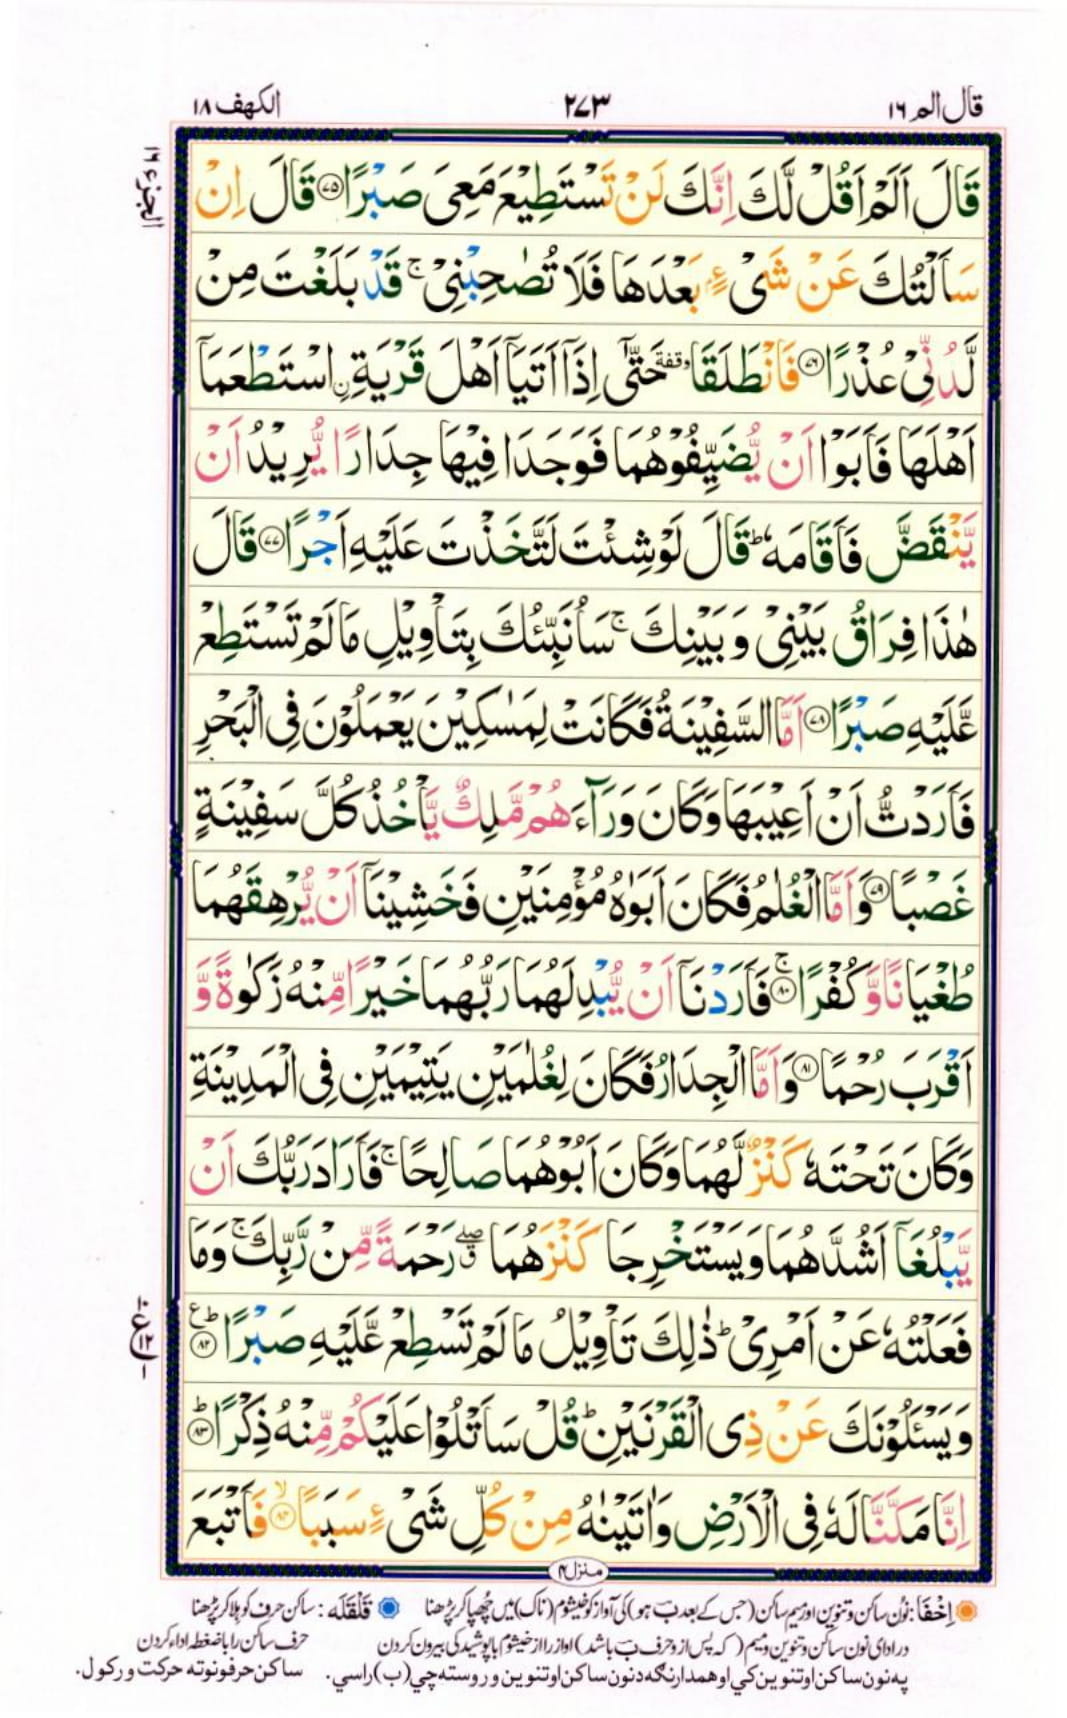 قال الم ١٦
٢٧٣
الكهف ١٨
الجزء ١٦
قَالَ اَلَمْ اَقُلْ لَّكَ اِنَّكَ لَنْ تَسْتَطِيْعَ مَعِيَ صَبْرًا ۝٧٥ قَالَ اِنْ
سَاَلْتُكَ عَنْ شَيْءٍۢ بَعْدَهَا فَلَا تُصٰحِبْنِيْ ۚ قَدْ بَلَغْتَ مِنْ
لَّدُنِّيْ عُذْرًا ۝٧٦ فَانْطَلَقَا ۥوقفة حَتّٰۤى اِذَاۤ اَتَيَاۤ اَهْلَ قَرْيَةِ ۨاسْتَطْعَمَاۤ
اَهْلَهَا فَاَبَوْا اَنْ يُّضَيِّفُوْهُمَا فَوَجَدَا فِيْهَا جِدَارًا يُّرِيْدُ اَنْ
يَّنْقَضَّ فَاَقَامَهٗ ؕ قَالَ لَوْ شِئْتَ لَتَّخَذْتَ عَلَيْهِ اَجْرًا ۝٧٧ قَالَ
هٰذَا فِرَاقُ بَيْنِيْ وَ بَيْنِكَ ۚ سَاُنَبِّئُكَ بِتَاْوِيْلِ مَا لَمْ تَسْتَطِعْ
عَّلَيْهِ صَبْرًا ۝٧٨ اَمَّا السَّفِيْنَةُ فَكَانَتْ لِمَسٰكِيْنَ يَعْمَلُوْنَ فِي الْبَحْرِ
فَاَرَدْتُّ اَنْ اَعِيْبَهَا وَكَانَ وَرَآءَهُمْ مَّلِكٌ يَّاْخُذُ كُلَّ سَفِيْنَةٍ
غَصْبًا ۝٧٩ وَاَمَّا الْغُلٰمُ فَكَانَ اَبَوٰهُ مُؤْمِنَيْنِ فَخَشِيْنَاۤ اَنْ يُّرْهِقَهُمَا
طُغْيَانًا وَّكُفْرًا ۚ۝٨٠ فَاَرَدْنَاۤ اَنْ يُّبْدِلَهُمَا رَبُّهُمَا خَيْرًا مِّنْهُ زَكٰوةً وَّ
اَقْرَبَ رُحْمًا ۝٨١ وَاَمَّا الْجِدَارُ فَكَانَ لِغُلٰمَيْنِ يَتِيْمَيْنِ فِي الْمَدِيْنَةِ
وَكَانَ تَحْتَهٗ كَنْزٌ لَّهُمَا وَكَانَ اَبُوْهُمَا صَالِحًا ۚ فَاَرَادَ رَبُّكَ اَنْ
يَّبْلُغَاۤ اَشُدَّهُمَا وَيَسْتَخْرِجَا كَنْزَهُمَا ۖق رَحْمَةً مِّنْ رَّبِّكَ ۚ وَمَا
فَعَلْتُهٗ عَنْ اَمْرِيْ ؕ ذٰلِكَ تَاْوِيْلُ مَا لَمْ تَسْطِعْ عَّلَيْهِ صَبْرًا ؕ۝٨٢ ع
وَيَسْئَلُوْنَكَ عَنْ ذِي الْقَرْنَيْنِ ؕ قُلْ سَاَتْلُوْا عَلَيْكُمْ مِّنْهُ ذِكْرًا ؕ۝٨٣
اِنَّا مَكَّنَّا لَهٗ فِي الْاَرْضِ وَاٰتَيْنٰهُ مِنْ كُلِّ شَيْءٍ سَبَبًا ۙ۝٨٤ فَاَتْبَعَ
منزل ۴
اِخْفَا: نون ساکن و تنوین اور میم ساکن (جس کے بعد ب ہو) کی آواز کو خیشوم (ناک) میں چھپا کر پڑھنا قَلْقَلَه: ساکن حرف کو ہلا کر پڑھنا
در ادای نون ساکن و تنوین و میم (که پس از و حرف ب باشد) آواز را از خیشوم با پوشیدگی بیرون کردن حرف ساکن را با ضغطه اداء کردن
په نون ساکن او تنوین کي او همدارنگه د نون ساکن او تنوین و روسته چي (ب) راسي. ساکن حرفونو ته حرکت ورکول.